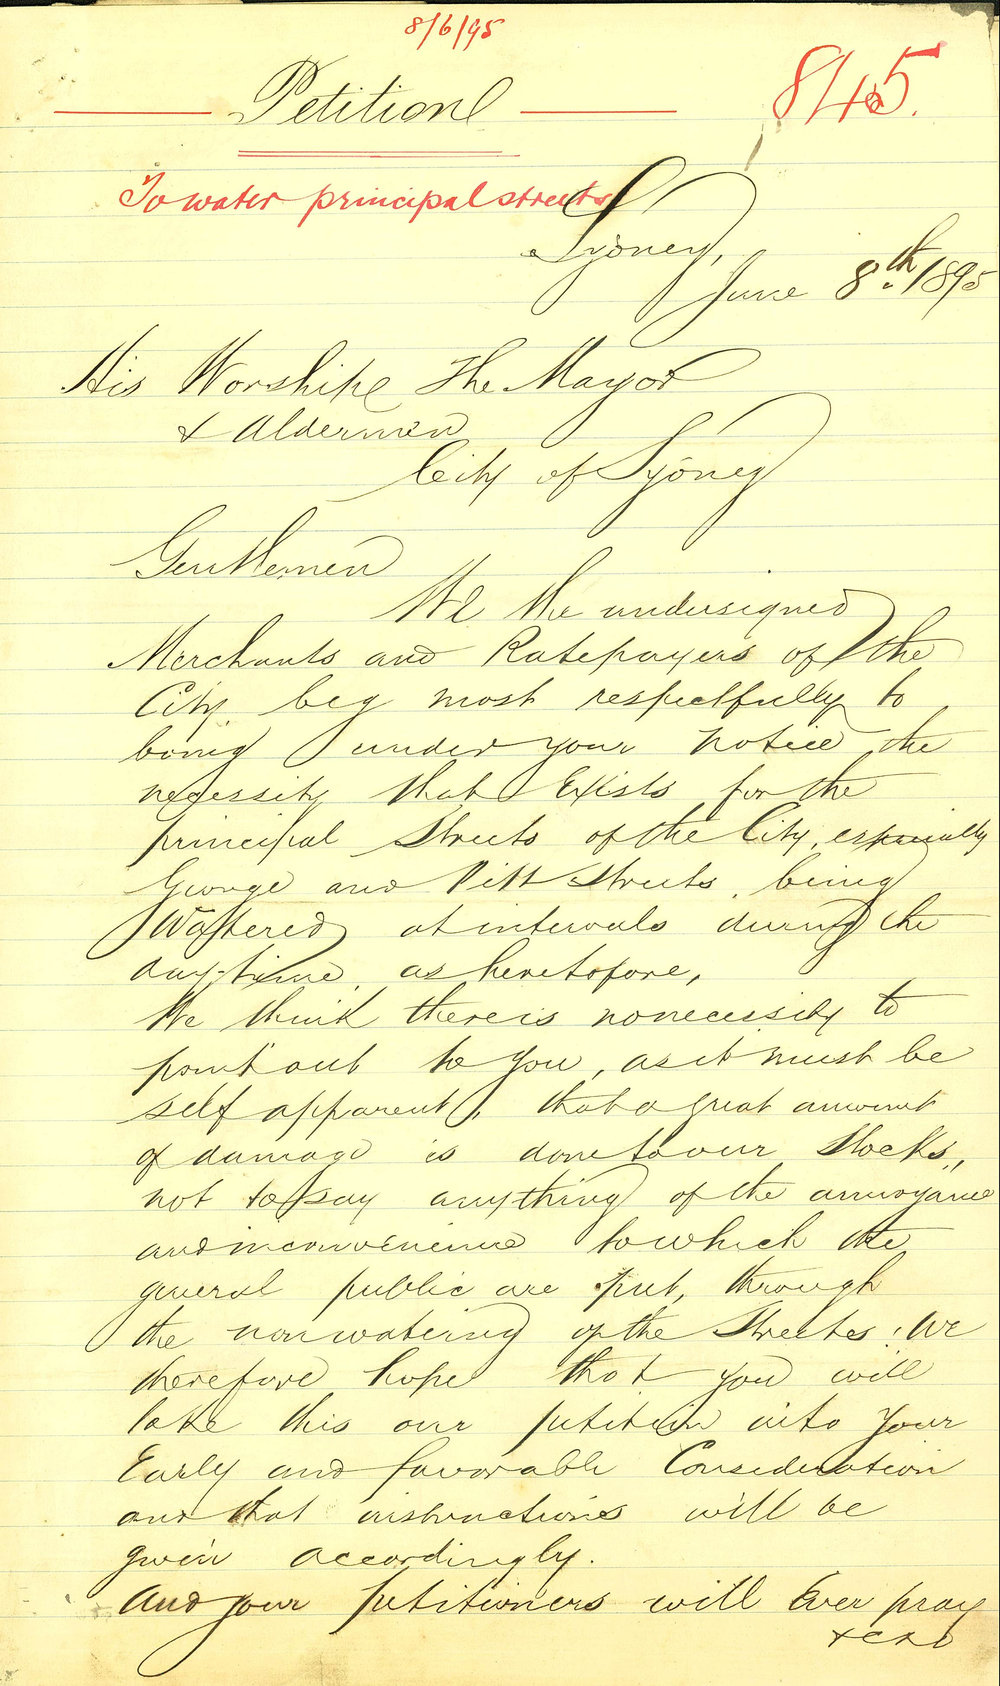 8/6/95
Petition
845.
To water principal streets
Sydney,
June 8th 1895
His Worship The Mayor
& Aldermen
City of Sydney
Gentlemen
We the undersigned
Merchants and Ratepayers of the
City, beg most respectfully to
bring under your notice the
necessity that Exists for the
principal Streets of the City, especially
George and Pitt Streets, being
Watered at intervals during the
day-time, as heretofore,
We think there is no necessity to
point out to you, as it must be
self apparent, that a great amount
of damage is done to our Stocks,
not to say anything of the annoyance
and inconvenience to which the
general public are put, through
the non watering of the Streets. We
therefore hope that you will
take this our petition into your
Early and favorable Consideration
and that instructions will be
given accordingly.
And your petitioners will Ever pray